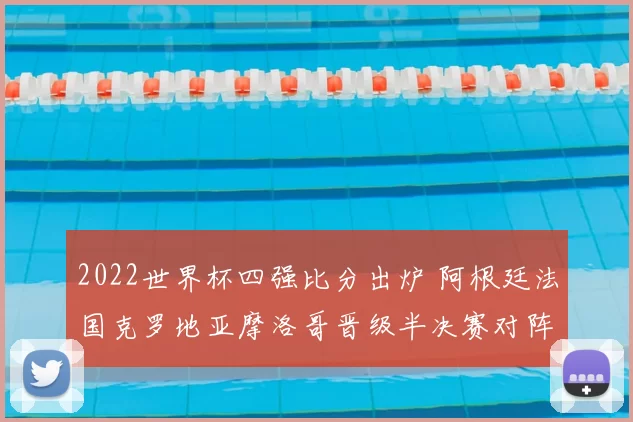 2022世界杯四强比分出炉 阿根廷法
国克罗地亚摩洛哥晋级半决赛对阵